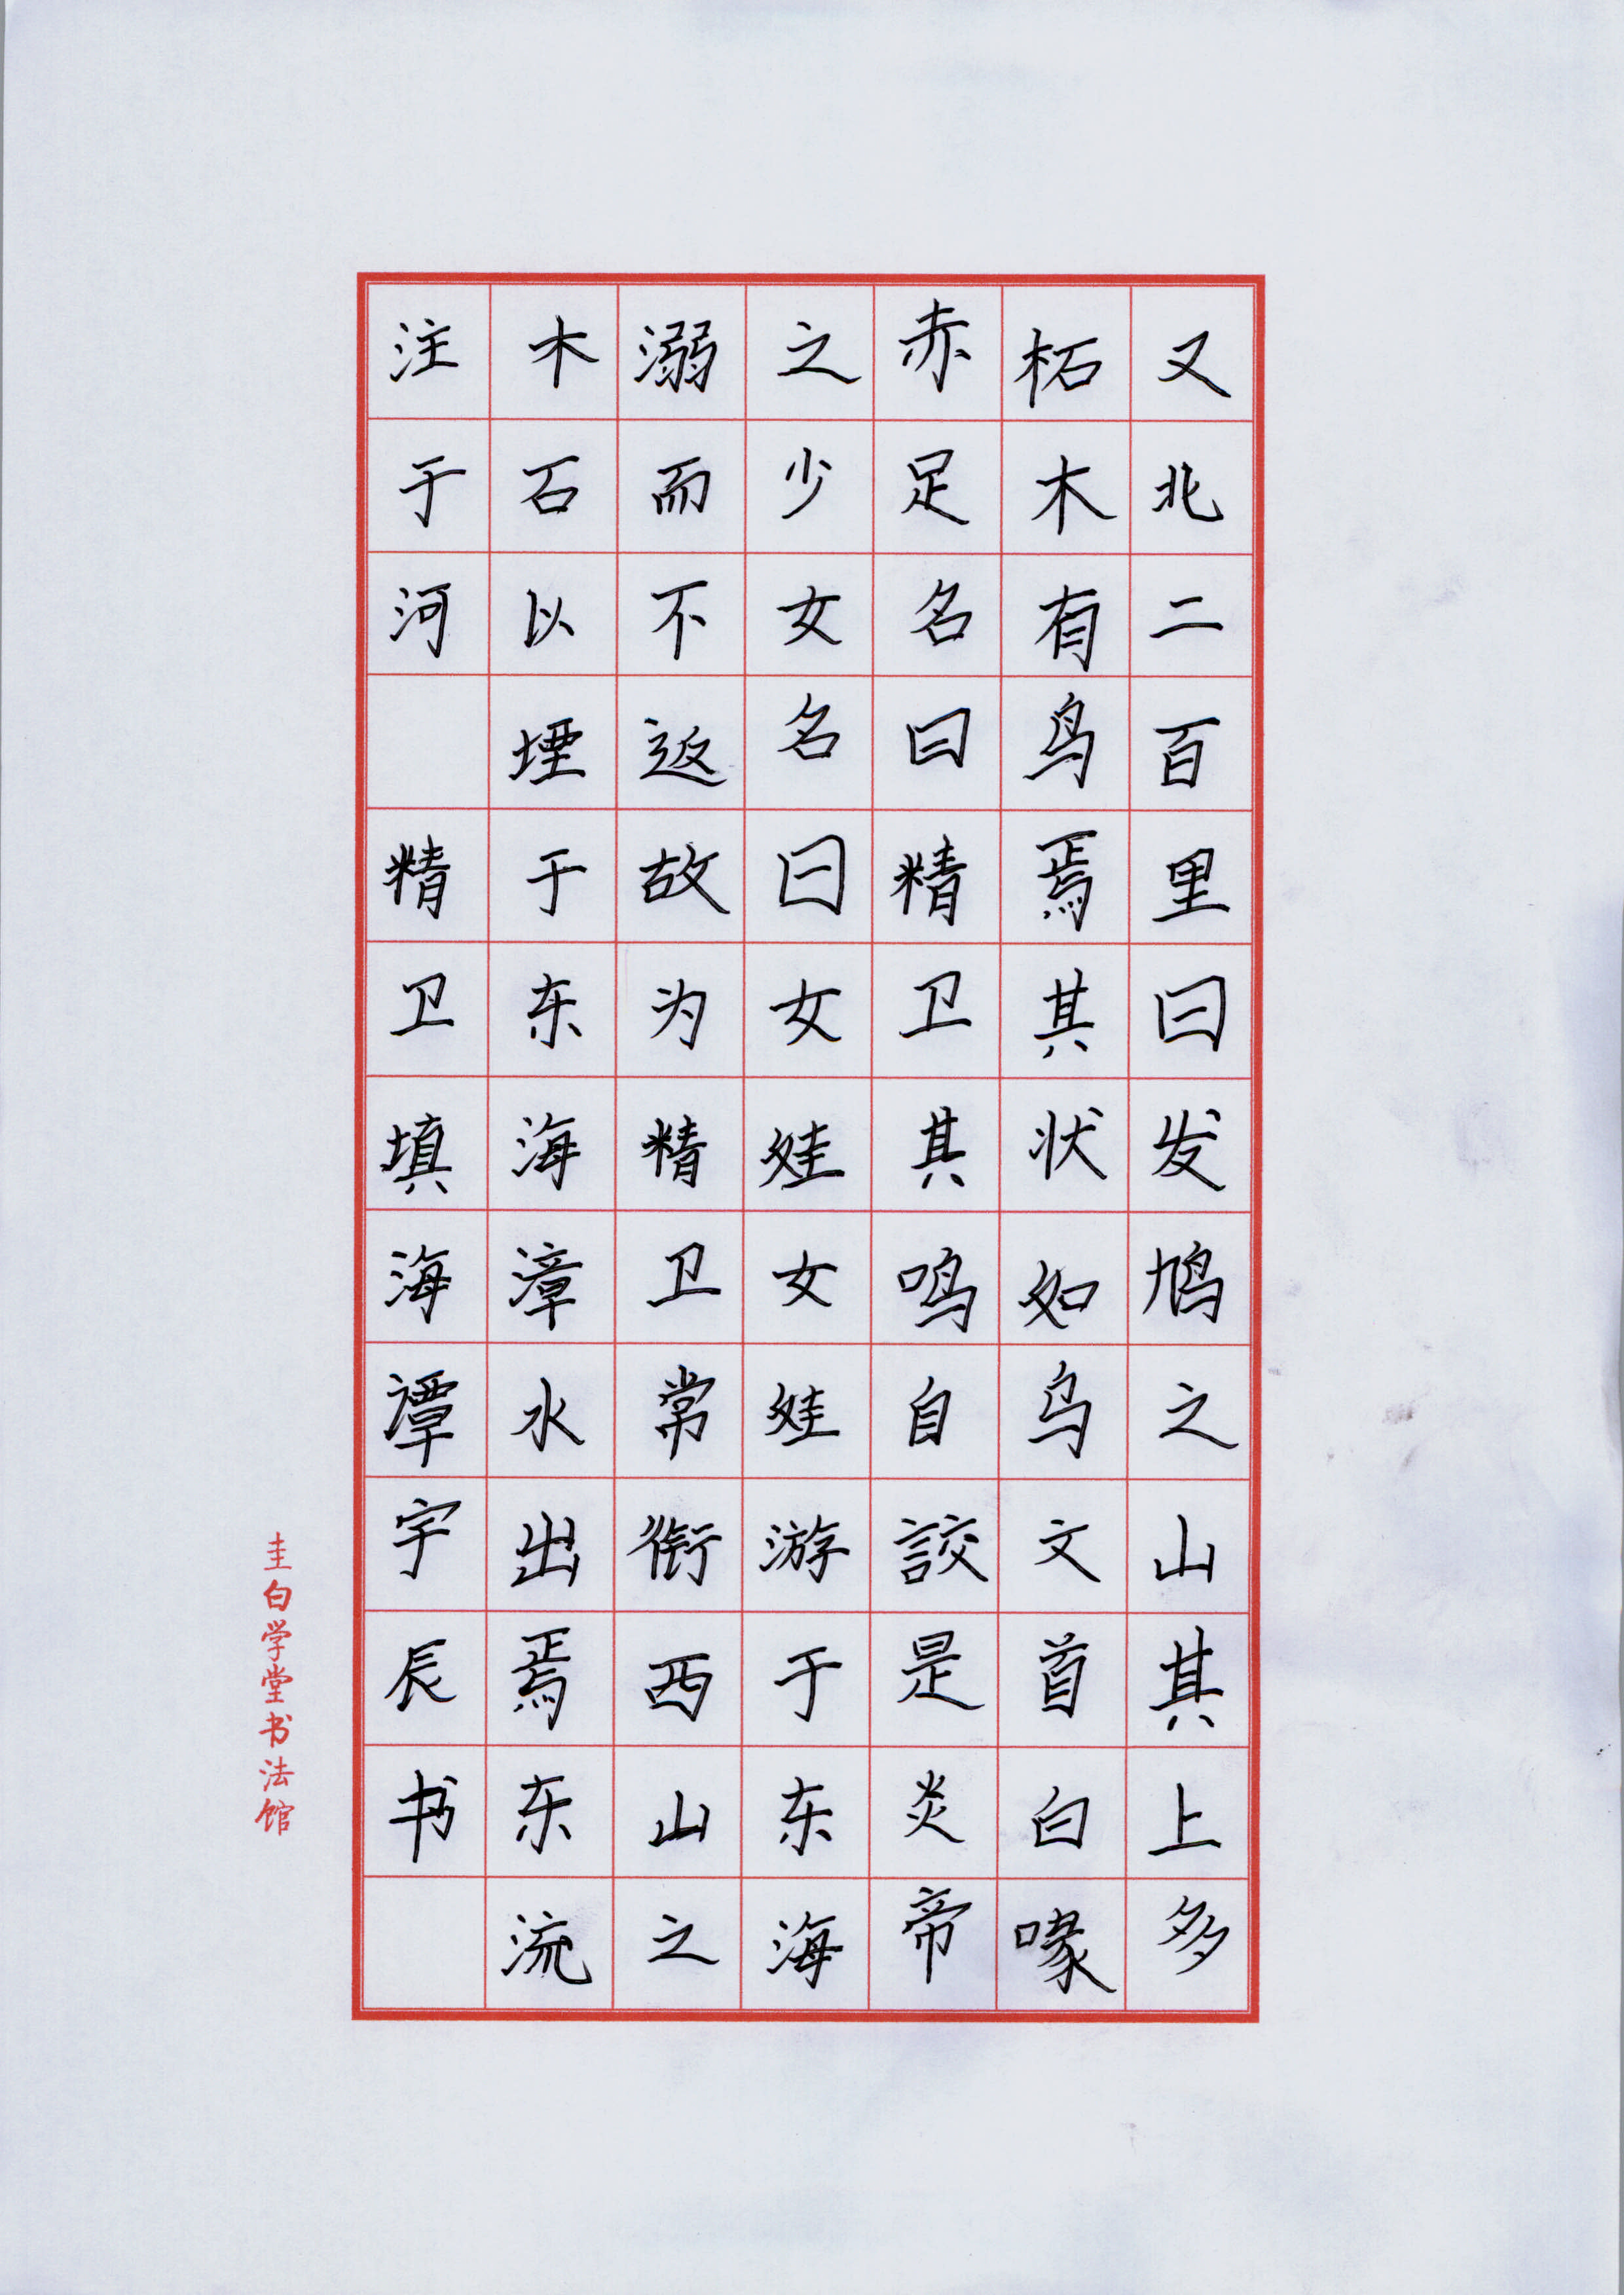 又北二百里曰发鸠之山其上多
柘木有鸟焉其状如乌文首白喙
赤足名曰精卫其鸣自詨是炎帝
之少女名曰女娃女娃游于东海
溺而不返故为精卫常衔西山之
木石以堙于东海漳水出焉东流
注于河 精卫填海谭宇辰书
圭白学堂书法馆